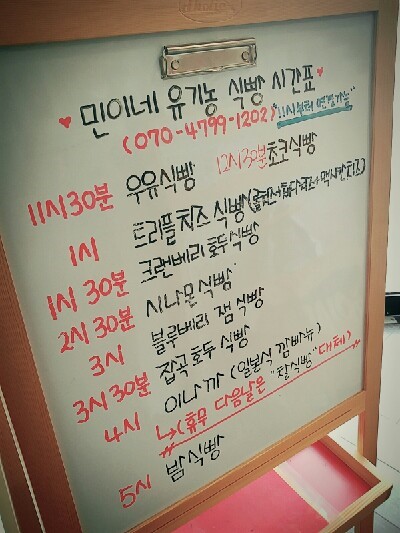 ♥ 민이네 유기농 식빵 시간표 ♥
(070-4799-1202) "11시부터 연결가능"
11시30분 우유식빵 12시30분 초코식빵
1시 트리플치즈식빵
1시 30분 크랜베리호두식빵
2시 30분 시나몬식빵
3시 블루베리 잼 식빵
3시 30분 잡곡호두 식빵
4시 이나까 (일본식 깜빠뉴)
↳(휴무 다음날은 "찰식빵" 대체)
5시 밤식빵